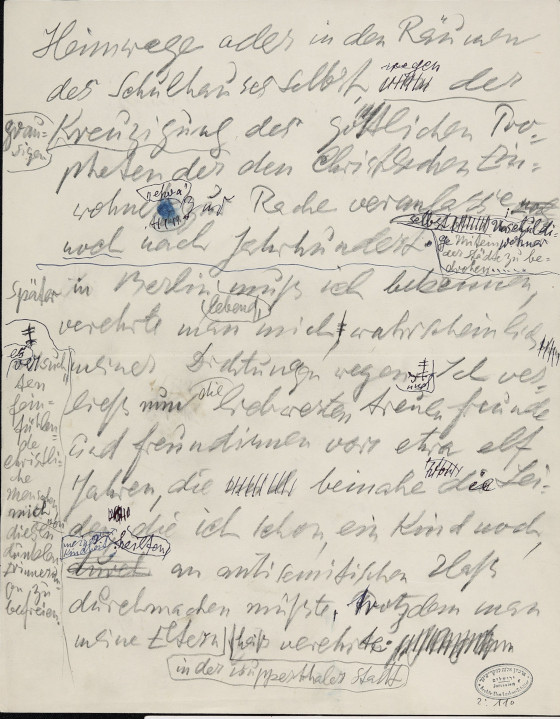 Heimwege oder in den Räumen
des Schulhauses selbst, wegen der
grausigen
Kreuzigung des göttlichen Pro=
pheten der den christlichen Ein=
wohn "etwa" zur Rache veranlasse
noch nach Jahrhundert.
selbst unschuldi-
ge Mitein wohner
der Städte zu be-
drohen
Später in Berlin muß ich bekennen,
(lebend,)
verehrte man mich, wahrscheinlich
meiner Dichtungen wegen. Ich ver-
ließ nun die liebwerten treuen Freunde
und Freundinnen vor etwa elf
Jahren, die beinahe die Lei-
den heilten, die ich schon ein Kind noch,
durch an antisemitischen Haß
durchmachen müßte, trotzdem man
meine Eltern verehrte.
in der Wupperthaler Stadt
es
versuch
ten
fein-
fühlen
de
christli-
che
menschen
mich von
diesen
dunklen
Erinner-
on zu
befreien
2: 110